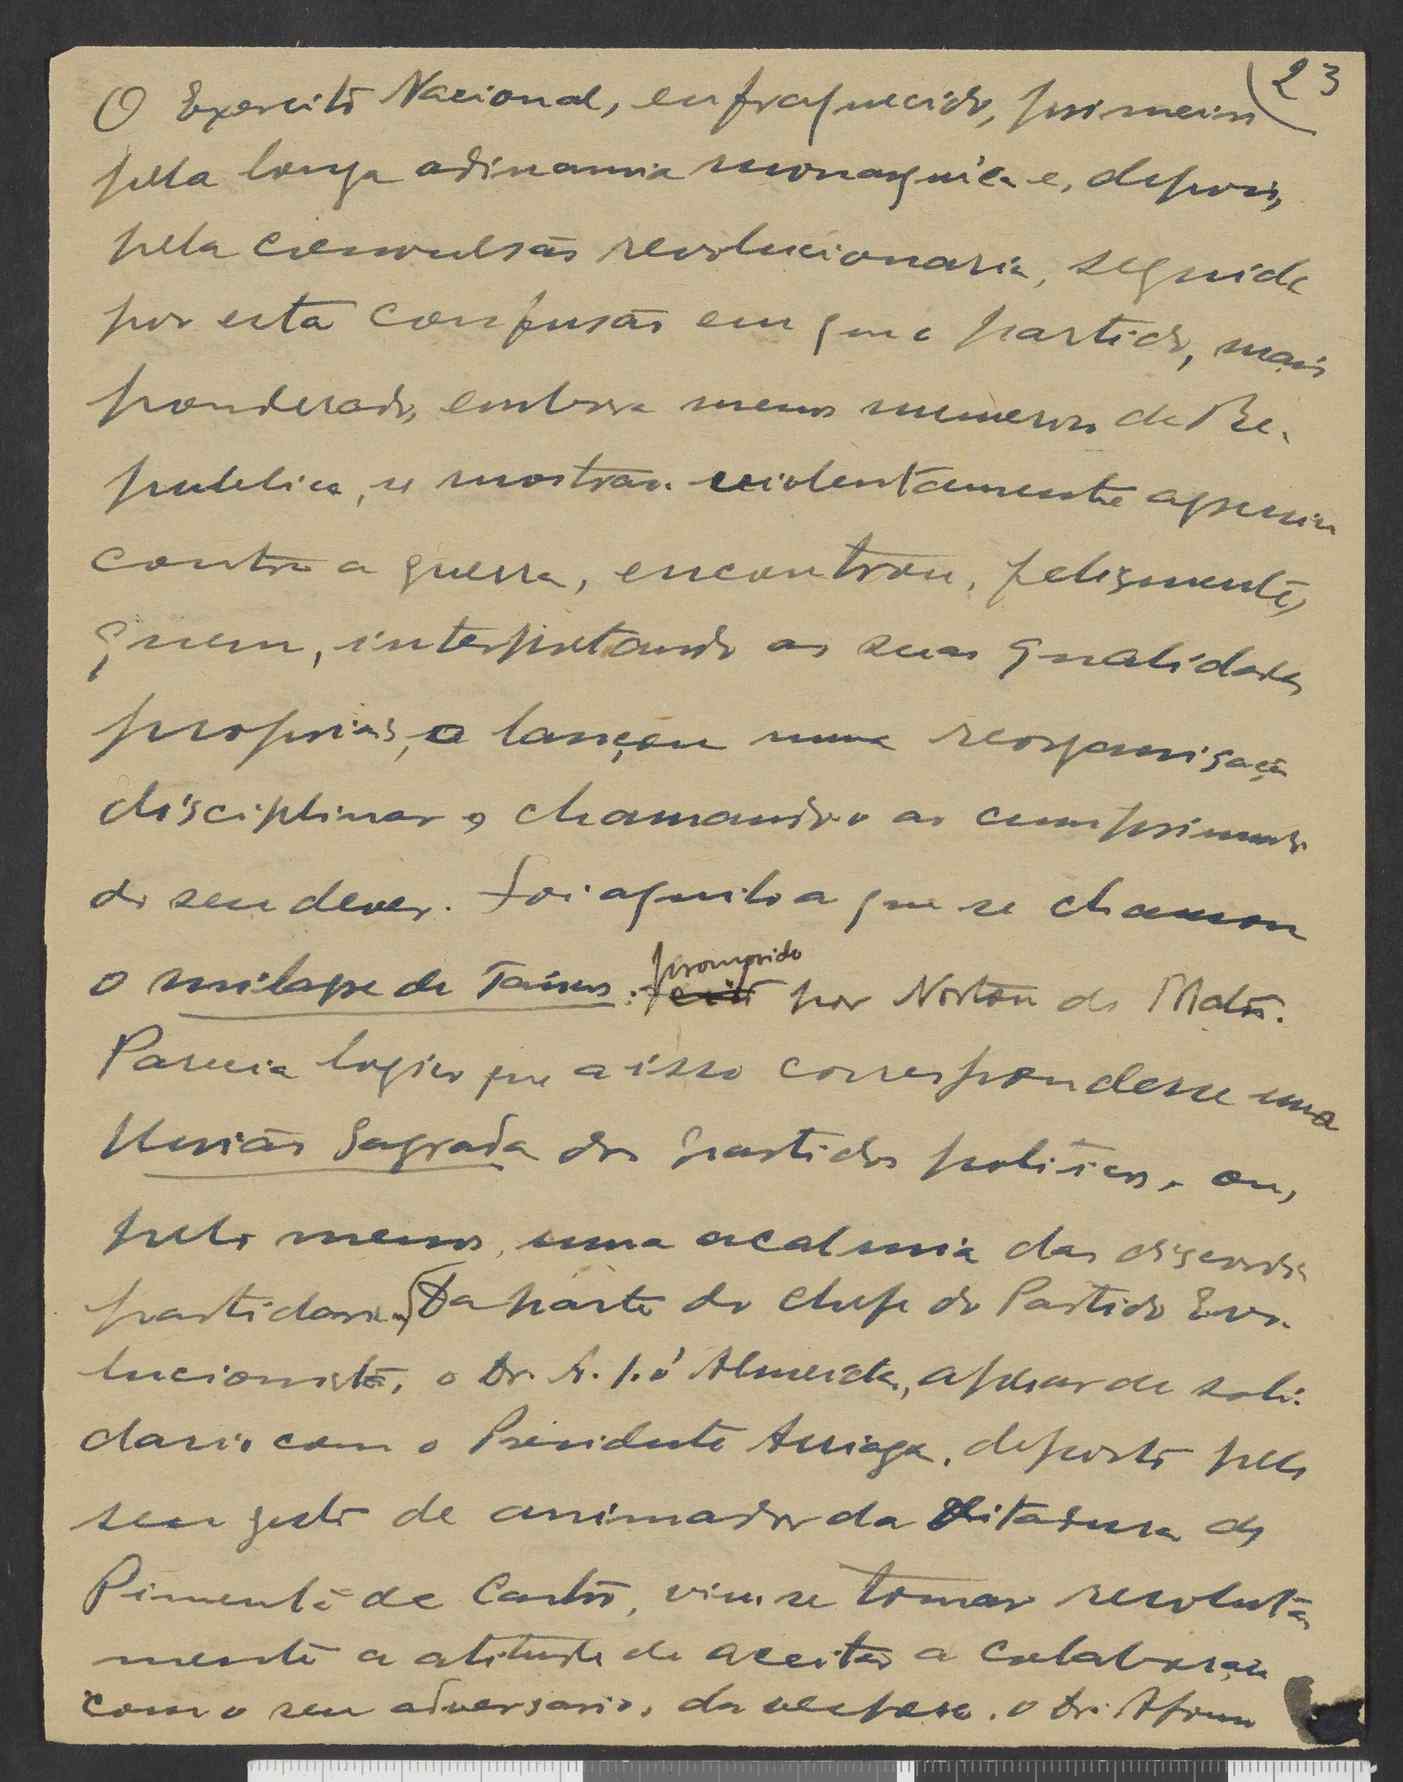 23
O Exercito Nacional, enfraquecido, primeiro
pela longa adinamia monarquica e, depois,
pela convulsão revolucionaria, seguida
por esta confusão em que o partido, mais
ponderado, embora menos numeroso da Re-
publica, se mostrava violentamente
contra a guerra, encontrou, felizmente,
quem, interpretando as suas qualidades
proprias, o lançou numa reorganização
disciplinar, chamando-o ao cumprimento
do seu dever. Foi aquilo a que se chamou
o milagre de Tancos: promovido por Norton de Matos.
Parecia logico que a isso correspondesse uma
União Sagrada dos partidos politicos, ou,
pelo menos, uma acalmia das discordias
partidarias. Da parte do chefe do Partido Evo-
lucionista, o Dr. A. J. d'Almeida, apesar de soli-
dario com o Presidente Arriaga, deposto pelo
seu gesto de animador da Ditadura de
Pimenta de Castro, viu-se tomar resoluta-
mente a atitude de aceitar a colaboração
com o seu adversario, da vespera, o Dr. Afonso